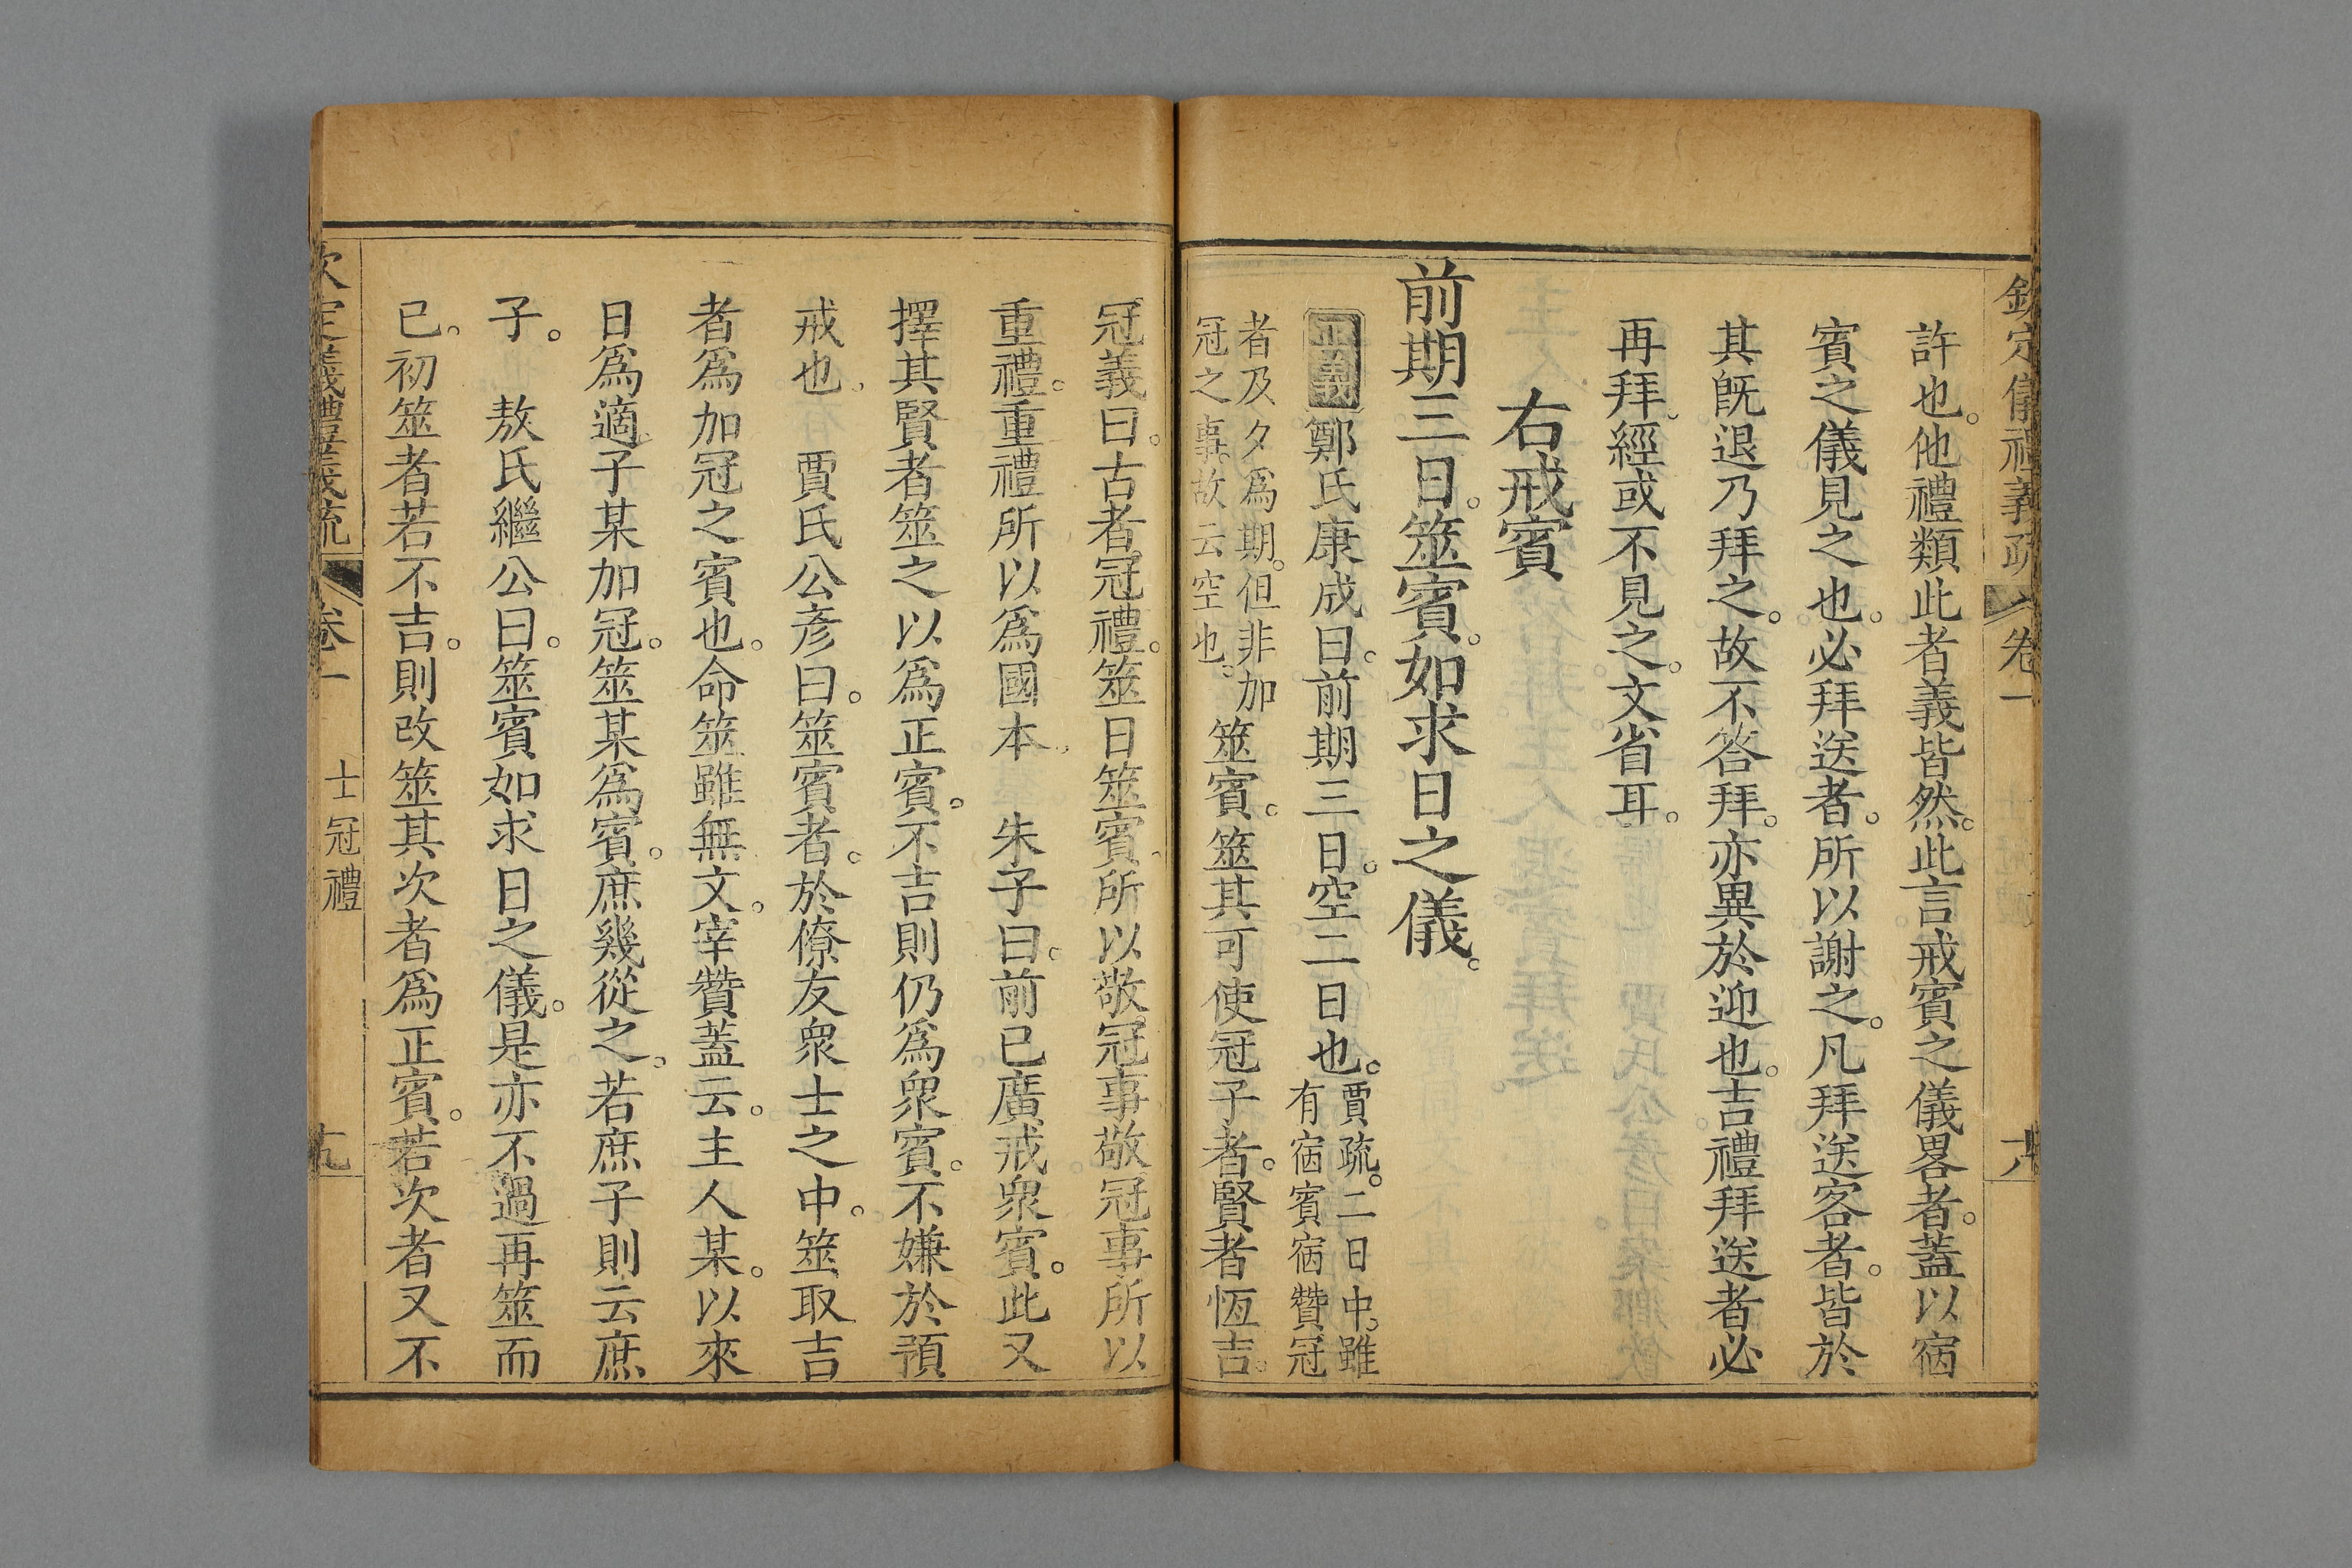 欽定儀禮義疏 卷一 十八
許也。他禮類此者義皆然。此言戒賓之儀畧者。蓋以宿
賓之儀見之也。必拜送者。所以謝之。凡拜送客者。皆於
其旣退乃拜之。故不答拜。亦異於迎也。吉禮拜送者必
再拜。經或不見之。文省耳。
右戒賓
前期三日。筮賓。如求日之儀。
正義 鄭氏康成曰。前期三日。空二日也。賈疏。二日中。雖
有宿賓宿贊冠
者及夕爲期。但非加
冠之事。故云空也。筮賓。筮其可使冠子者。賢者恆吉。
冠義曰。古者冠禮。筮日筮賓。所以敬冠事。敬冠事所以
重禮。重禮所以爲國本。 朱子曰。前已廣戒衆賓。此又
擇其賢者筮之。以爲正賓。不吉則仍爲衆賓。不嫌於預
戒也。 賈氏公彥曰。筮賓者。於僚友衆士之中。筮取吉
者爲加冠之賓也。命筮雖無文。宰贊蓋云。主人某。以來
日爲適子某加冠。筮某爲賓。庶幾從之。若庶子則云庶
子。 敖氏繼公曰。筮賓如求日之儀。是亦不過再筮而
已。初筮者若不吉。則改筮其次者爲正賓。若次者又不
欽定儀禮義疏 卷一 士冠禮 十九